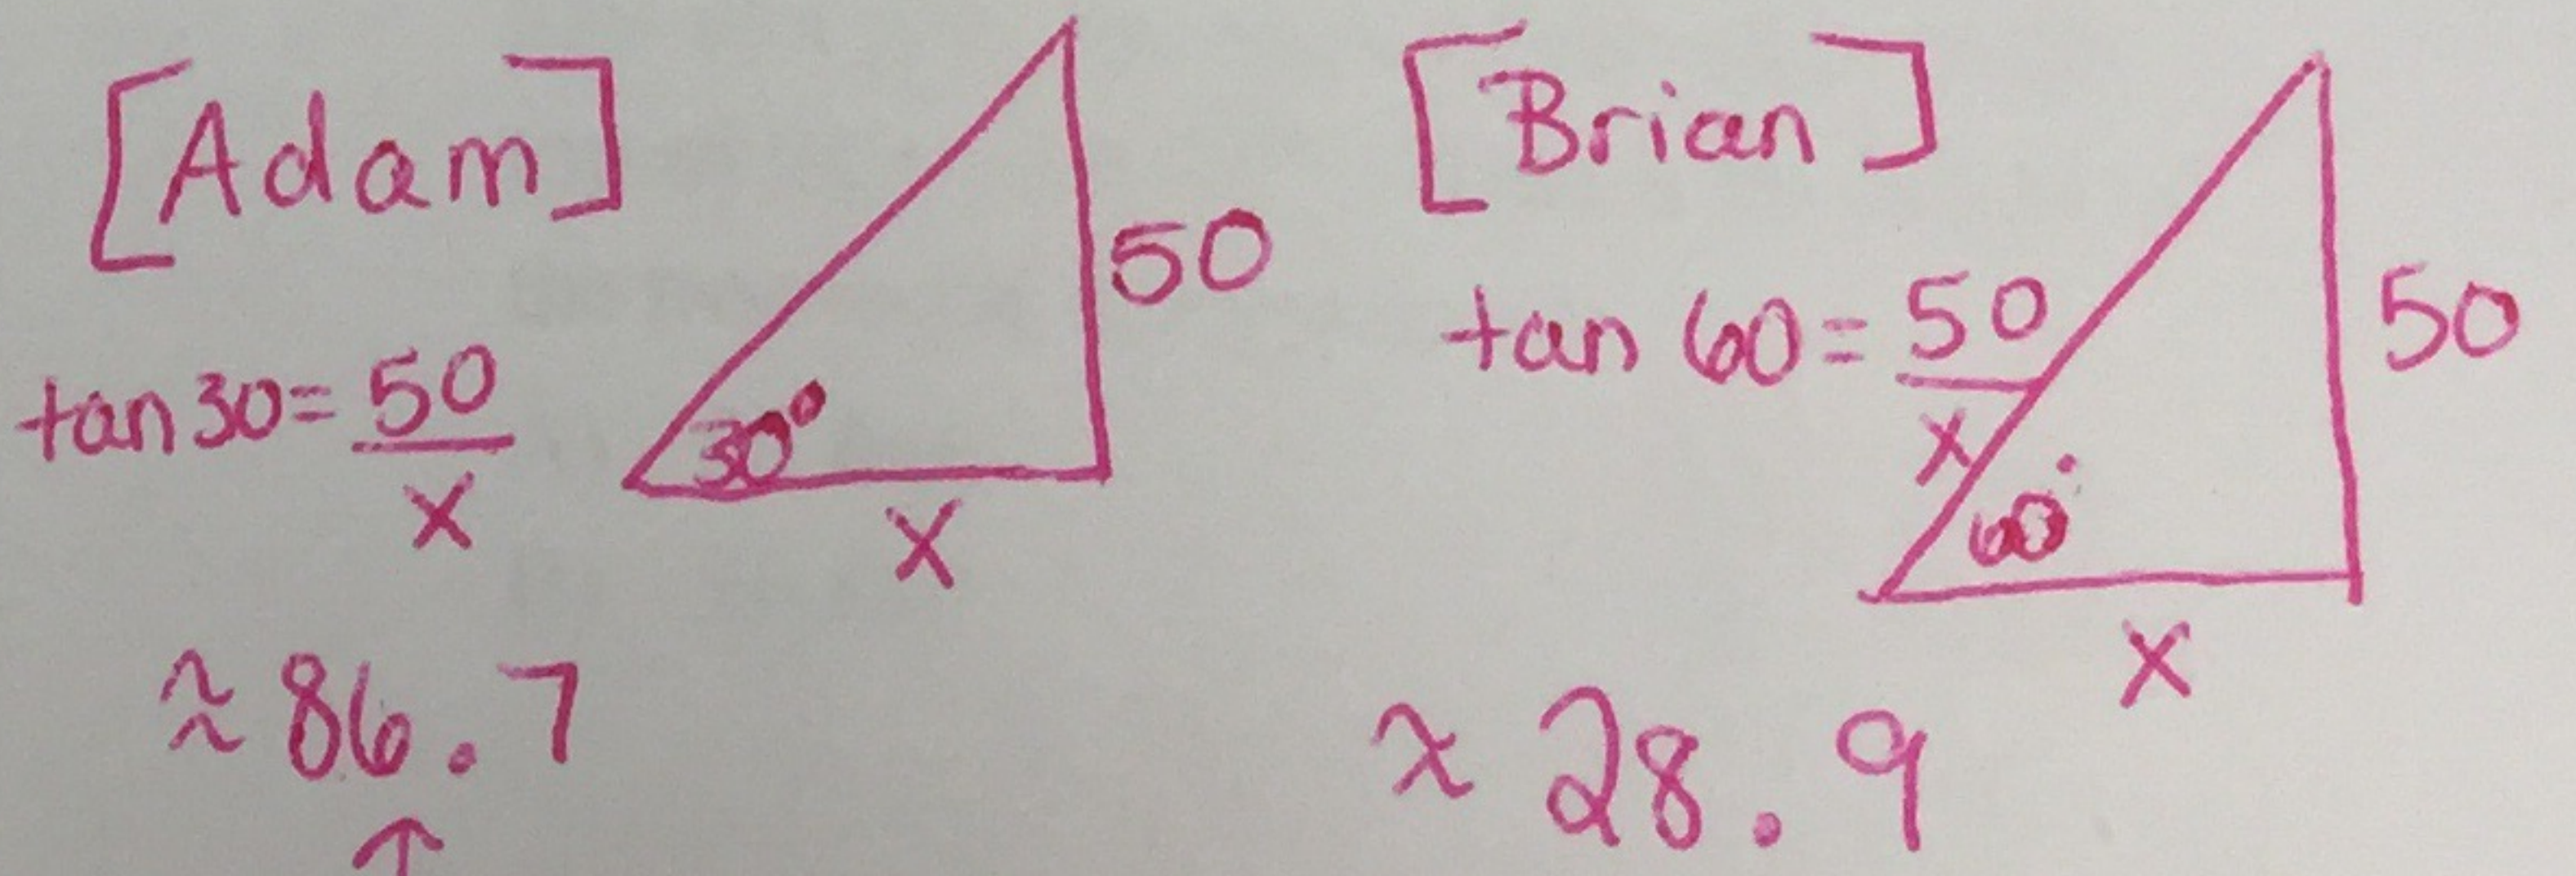 [Adam]
50
tan 30 = 50
x
30°
x
≈ 86.7
↑
[Brian]
50
tan 60 = 50
x
60°
x
≈ 28.9